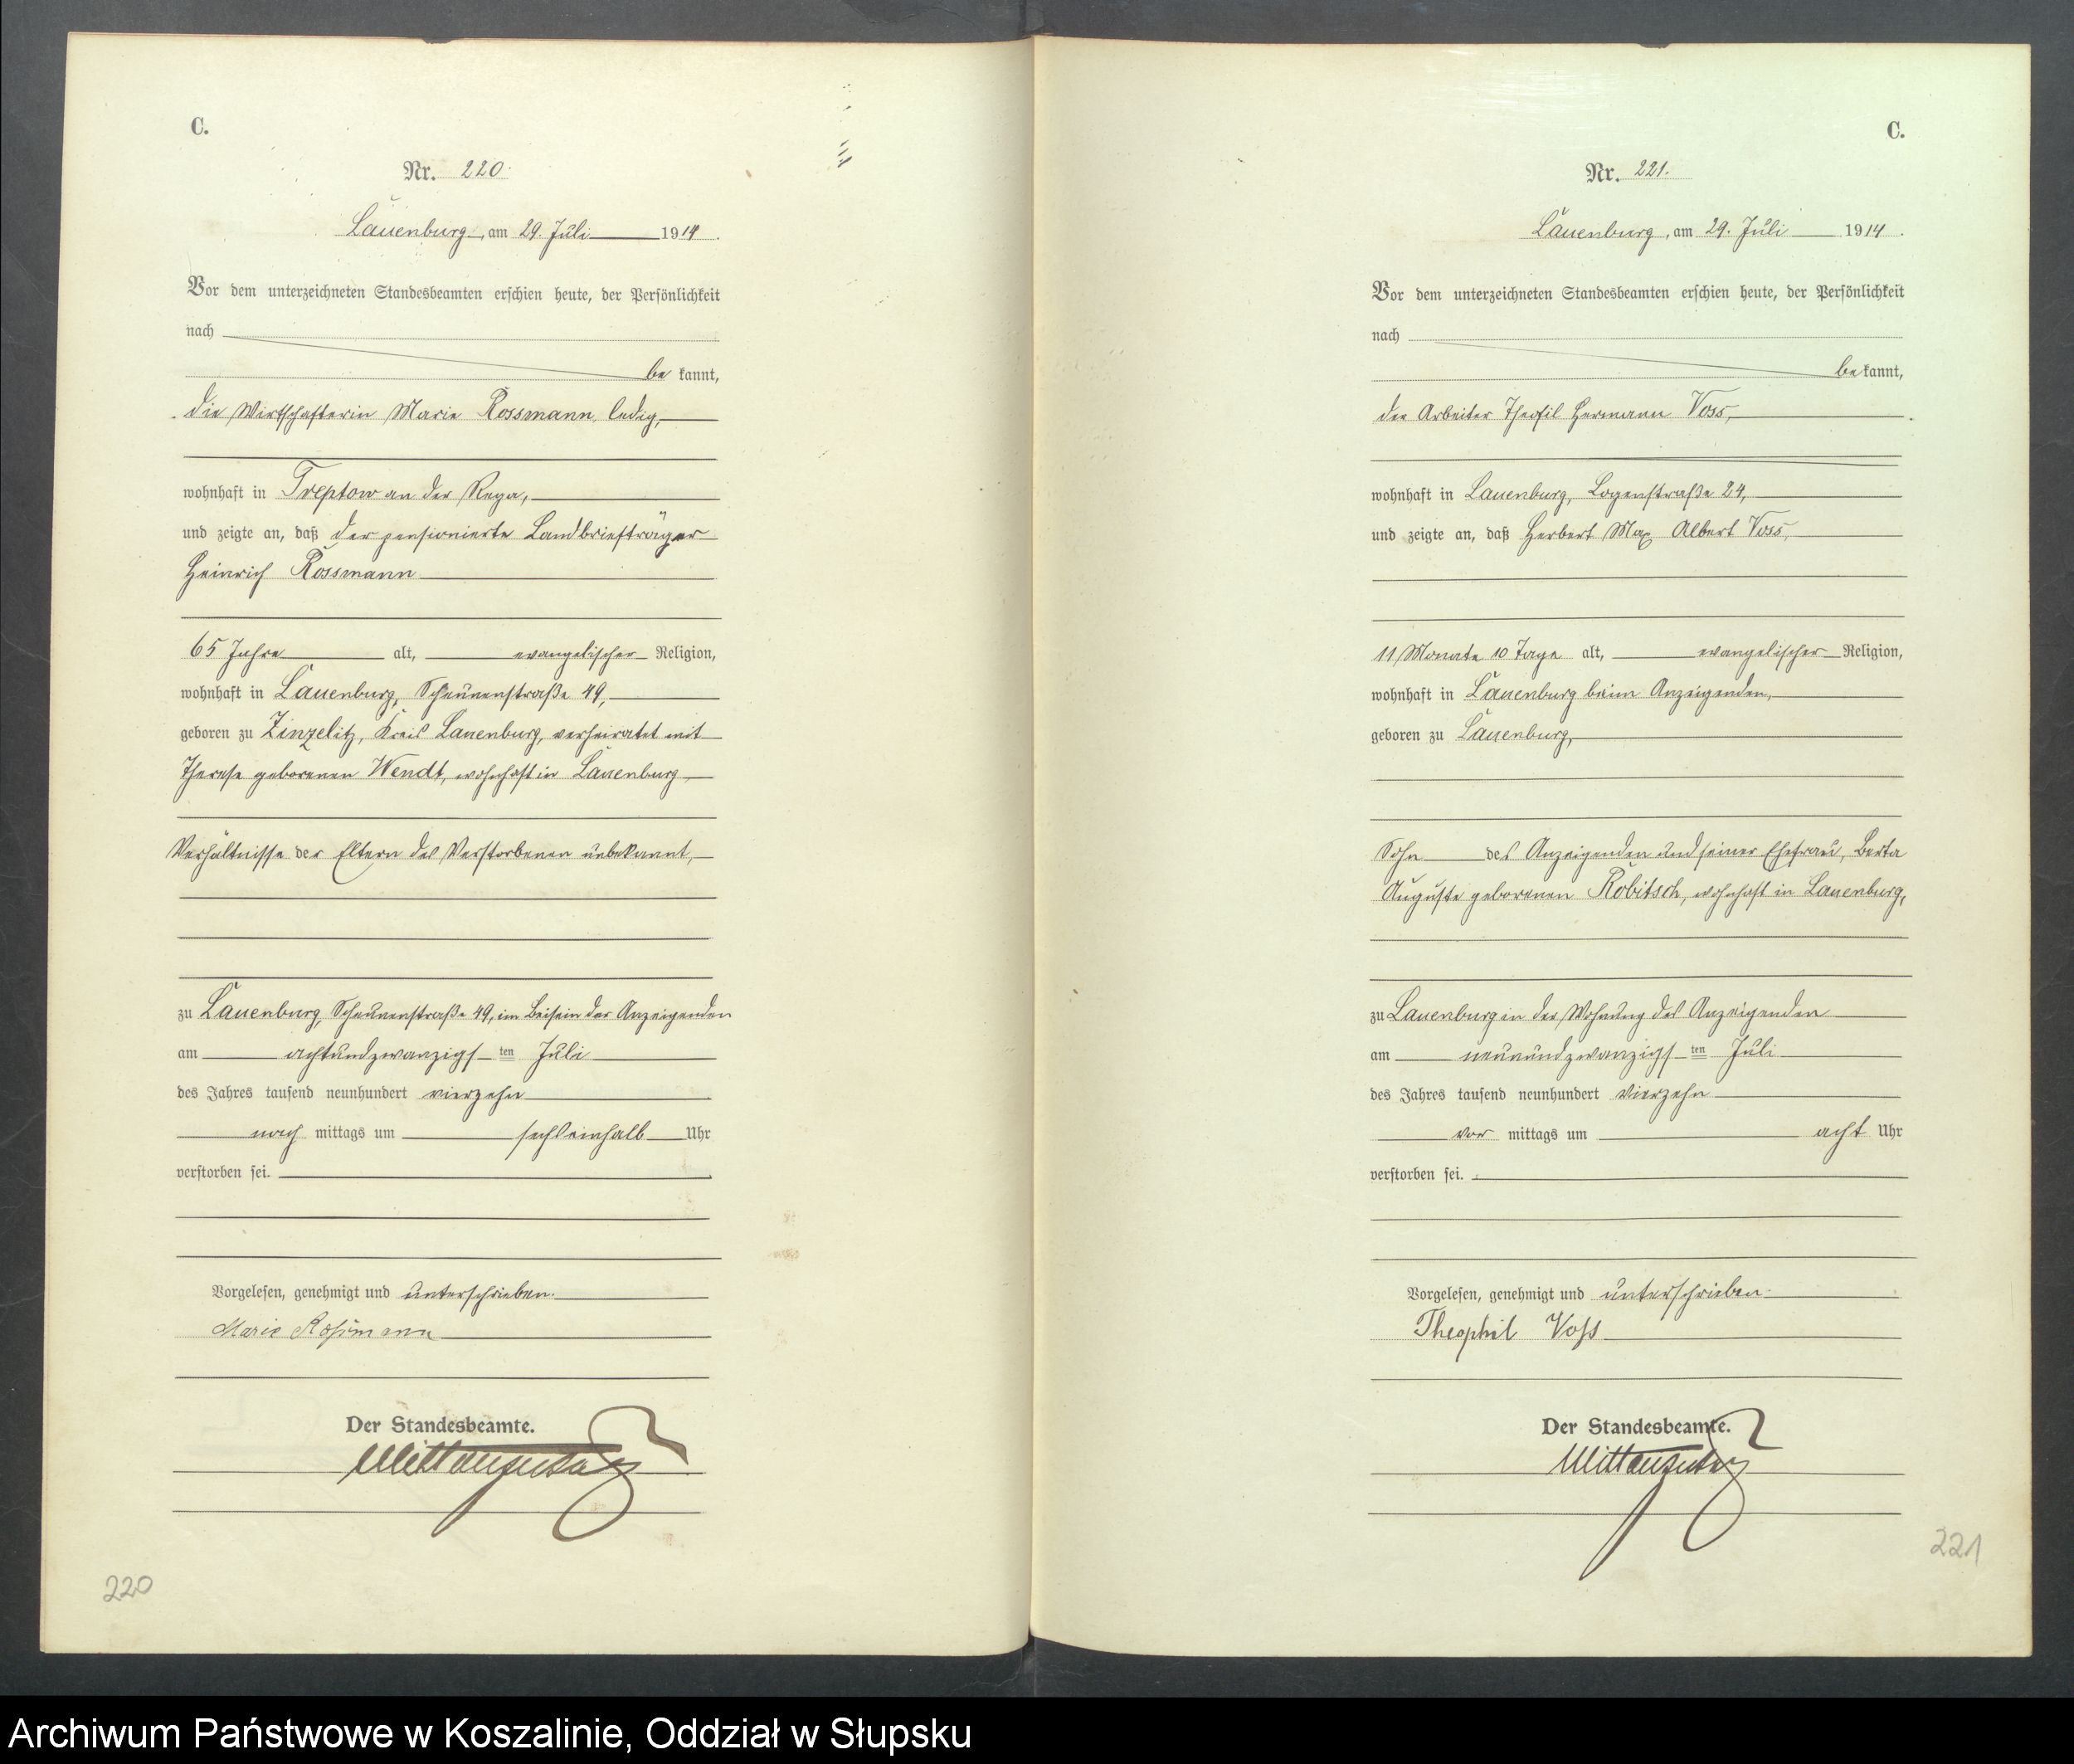 C.
Nr. 220.
Lauenburg, am 29. Juli 1914.
Vor dem unterzeichneten Standesbeamten erschien heute, der Persönlichkeit
nach
be kannt,
die Wirtschafterin Marie Rossmann, ledig,
wohnhaft in Treptow an der Rega,
und zeigte an, daß der pensionierte Landbriefträger
Heinrich Rossmann
65 Jahre alt, evangelischer Religion,
wohnhaft in Lauenburg, Scheunenstraße 49,
geboren zu Zinzelitz, Kreis Lauenburg, verheiratet mit
Therese geborenen Wendt, wohnhaft in Lauenburg
Verhältnisse der Eltern des Verstorbenen unbekannt,
zu Lauenburg, Scheunenstraße 49, im Beisein der Anzeigenden
am achtundzwanzigs ten Juli
des Jahres tausend neunhundert vierzehn
nach mittags um sechseinhalb Uhr
verstorben sei.
Vorgelesen, genehmigt und unterschrieben.
Marie Roßmann
Der Standesbeamte.
220
C.
Nr. 221.
Lauenburg, am 29. Juli 1914.
Vor dem unterzeichneten Standesbeamten erschien heute, der Persönlichkeit
nach
be kannt,
der Arbeiter Theofil Hermann Voss,
wohnhaft in Lauenburg, Logenstraße 24,
und zeigte an, daß Herbert Max Albert Voss,
11 Monate 10 Tage alt, evangelischer Religion,
wohnhaft in Lauenburg beim Anzeigenden,
geboren zu Lauenburg,
Sohn des Anzeigenden und seiner Ehefrau, Berta
Auguste geborenen Robitsch, wohnhaft in Lauenburg,
zu Lauenburg in der Wohnung des Anzeigenden
am neunundzwanzigs ten Juli
des Jahres tausend neunhundert vierzehn
vor mittags um acht Uhr
verstorben sei.
Vorgelesen, genehmigt und unterschrieben.
Theophil Voß
Der Standesbeamte.
221
Archiwum Państwowe w Koszalinie, Oddział w Słupsku